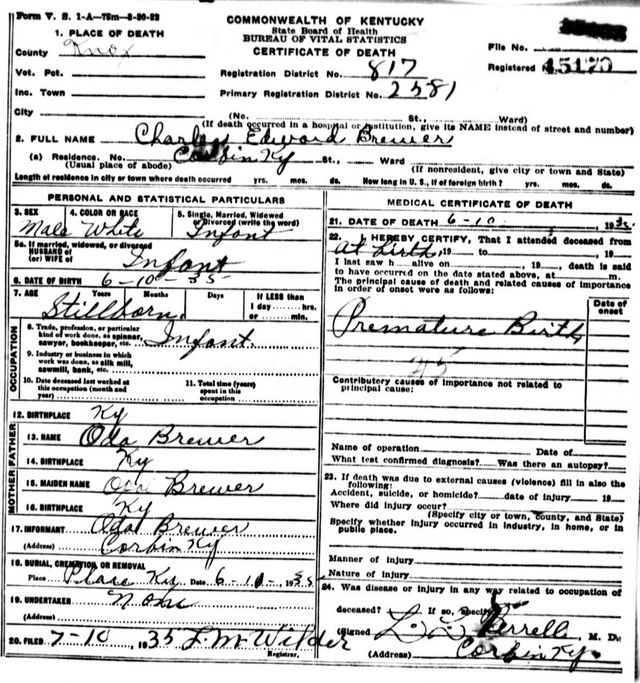 Form V. S. 1-A—75m—8-30-32
COMMONWEALTH OF KENTUCKY
State Board of Health
BUREAU OF VITAL STATISTICS
CERTIFICATE OF DEATH
1. PLACE OF DEATH
County Knox
Vot. Pct.
Inc. Town
City
Registration District No. 817
Primary Registration District No. 2581
File No.
Registered No. 15170
(No. St., Ward)
(If death occurred in a hospital or institution, give its NAME instead of street and number)
2. FULL NAME Charles Edward Brewer
(a) Residence. No. Corbin Ky St., Ward
(Usual place of abode) (If nonresident, give city or town and State)
Length of residence in city or town where death occurred yrs. mos. ds. How long in U. S., if of foreign birth? yrs. mos. ds.
PERSONAL AND STATISTICAL PARTICULARS
3. SEX Male
4. COLOR OR RACE White
5. Single, Married, Widowed or Divorced (write the word) Infant
5a. If married, widowed, or divorced
HUSBAND of
(or) WIFE of Infant
6. DATE OF BIRTH 6-10 35
7. AGE Years Months Days If LESS than
1 day hrs.
or min.
Stillborn
OCCUPATION
8. Trade, profession, or particular
kind of work done, as spinner,
sawyer, bookkeeper, etc. Infant.
9. Industry or business in which
work was done, as silk mill,
sawmill, bank, etc.
10. Date deceased last worked at
this occupation (month and
year)
11. Total time (years)
spent in this
occupation
12. BIRTHPLACE Ky
FATHER
13. NAME Oda Brewer
14. BIRTHPLACE Ky
MOTHER
15. MAIDEN NAME Brewer
16. BIRTHPLACE Ky
17. INFORMANT Oda Brewer
(Address) Corbin Ky
18. BURIAL, CREMATION, OR REMOVAL
Place Ky. Date 6-11-1935
19. UNDERTAKER None
(Address)
20. FILED 7-10, 1935 L. M. Wilder
Registrar.
MEDICAL CERTIFICATE OF DEATH
21. DATE OF DEATH 6-10 1935
22. I HEREBY CERTIFY, That I attended deceased from
at birth, 19 to , 19
I last saw h alive on , 19 , death is said
to have occurred on the date stated above, at m.
The principal cause of death and related causes of importance
in order of onset were as follows:
Date of
onset
Premature Birth
Contributory causes of importance not related to
principal cause:
Name of operation Date of
What test confirmed diagnosis? Was there an autopsy?
23. If death was due to external causes (violence) fill in also the
following:
Accident, suicide, or homicide? date of injury 19
Where did injury occur?
(Specify city or town, county, and State)
Specify whether injury occurred in industry, in home, or in
public place.
Manner of injury
Nature of injury
24. Was disease or injury in any way related to occupation of
deceased? If so, specify
(Signed , M. D.
(Address) Corbin Ky.